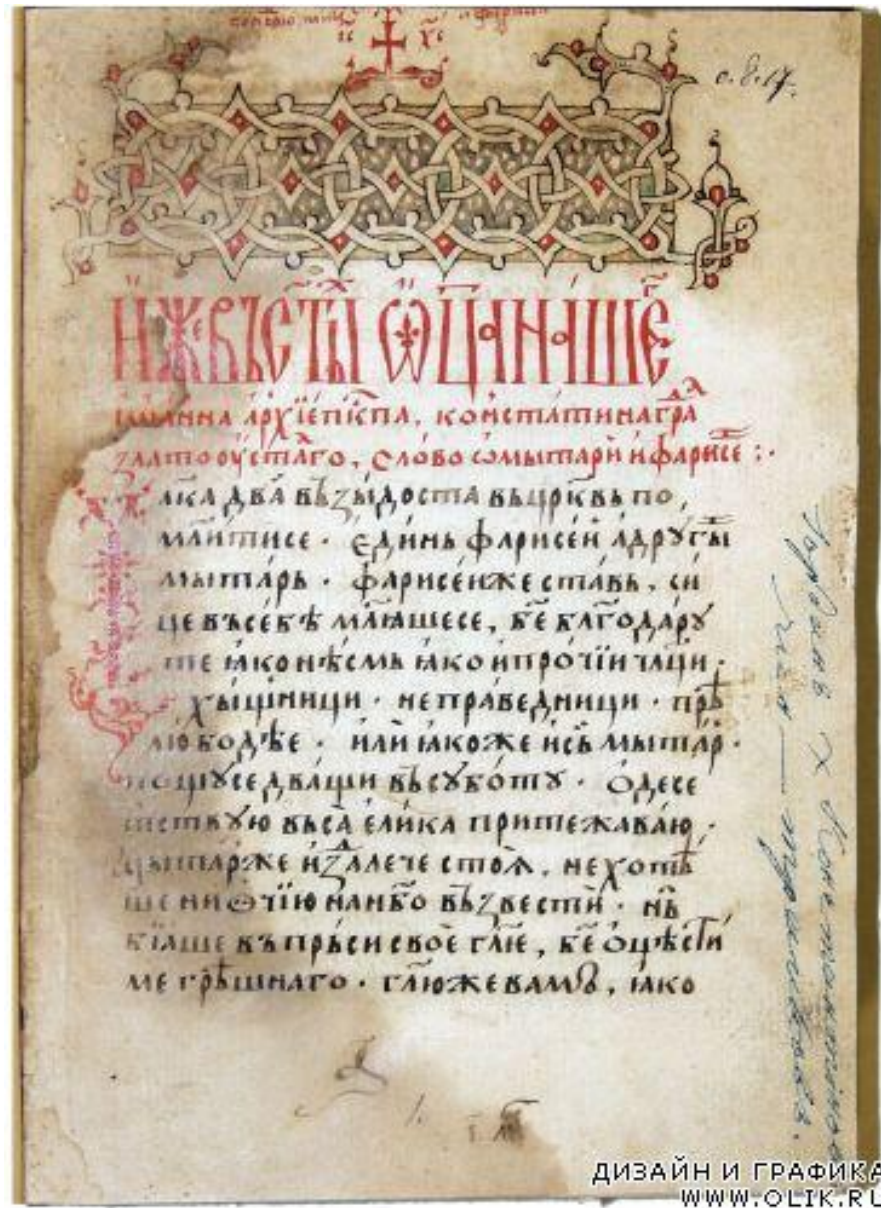 іс хс
о.8.17.
И҆же въ ст҃ы ѿц҃а на́шеⷢ҇
Іѡанна а҆рхїепⷭ҇кпа, констатинаграⷣ
залтооу́стаго, слово ѡ мытари и҆ фарисе :·
лка два въ зыдоста въ црк҃въ по
млитисе · є҆динь фарисеи а҆ другы
мытарь · фарисеи же ставь, си
це въ себѣ мл꙯ꙗшесе, бе҃ бл҃годару
те ꙗко нѣсмь ꙗко и҆ прочїи чл҃ци ·
хыщници · неправедници · прѣ
любодѣе · и҆ли ꙗкоже и҆ съ мытар ·
пощусе дващи въ суботу · ѻ҆десе
тствую въса є҆лика притежаваю ·
мытар же и҆здалече стоѧ, не хотѣ
ше ни ѻчїю на нб҃о възвести · нь
бїꙗше въ прьси своє гл҃ѥ, бе҃ ѻ҆цѣсти
ме грѣшнаго · гл҃ю же вамь, ꙗко
ДИЗАЙН И ГРАФИКА
WWW.OLIK.RU